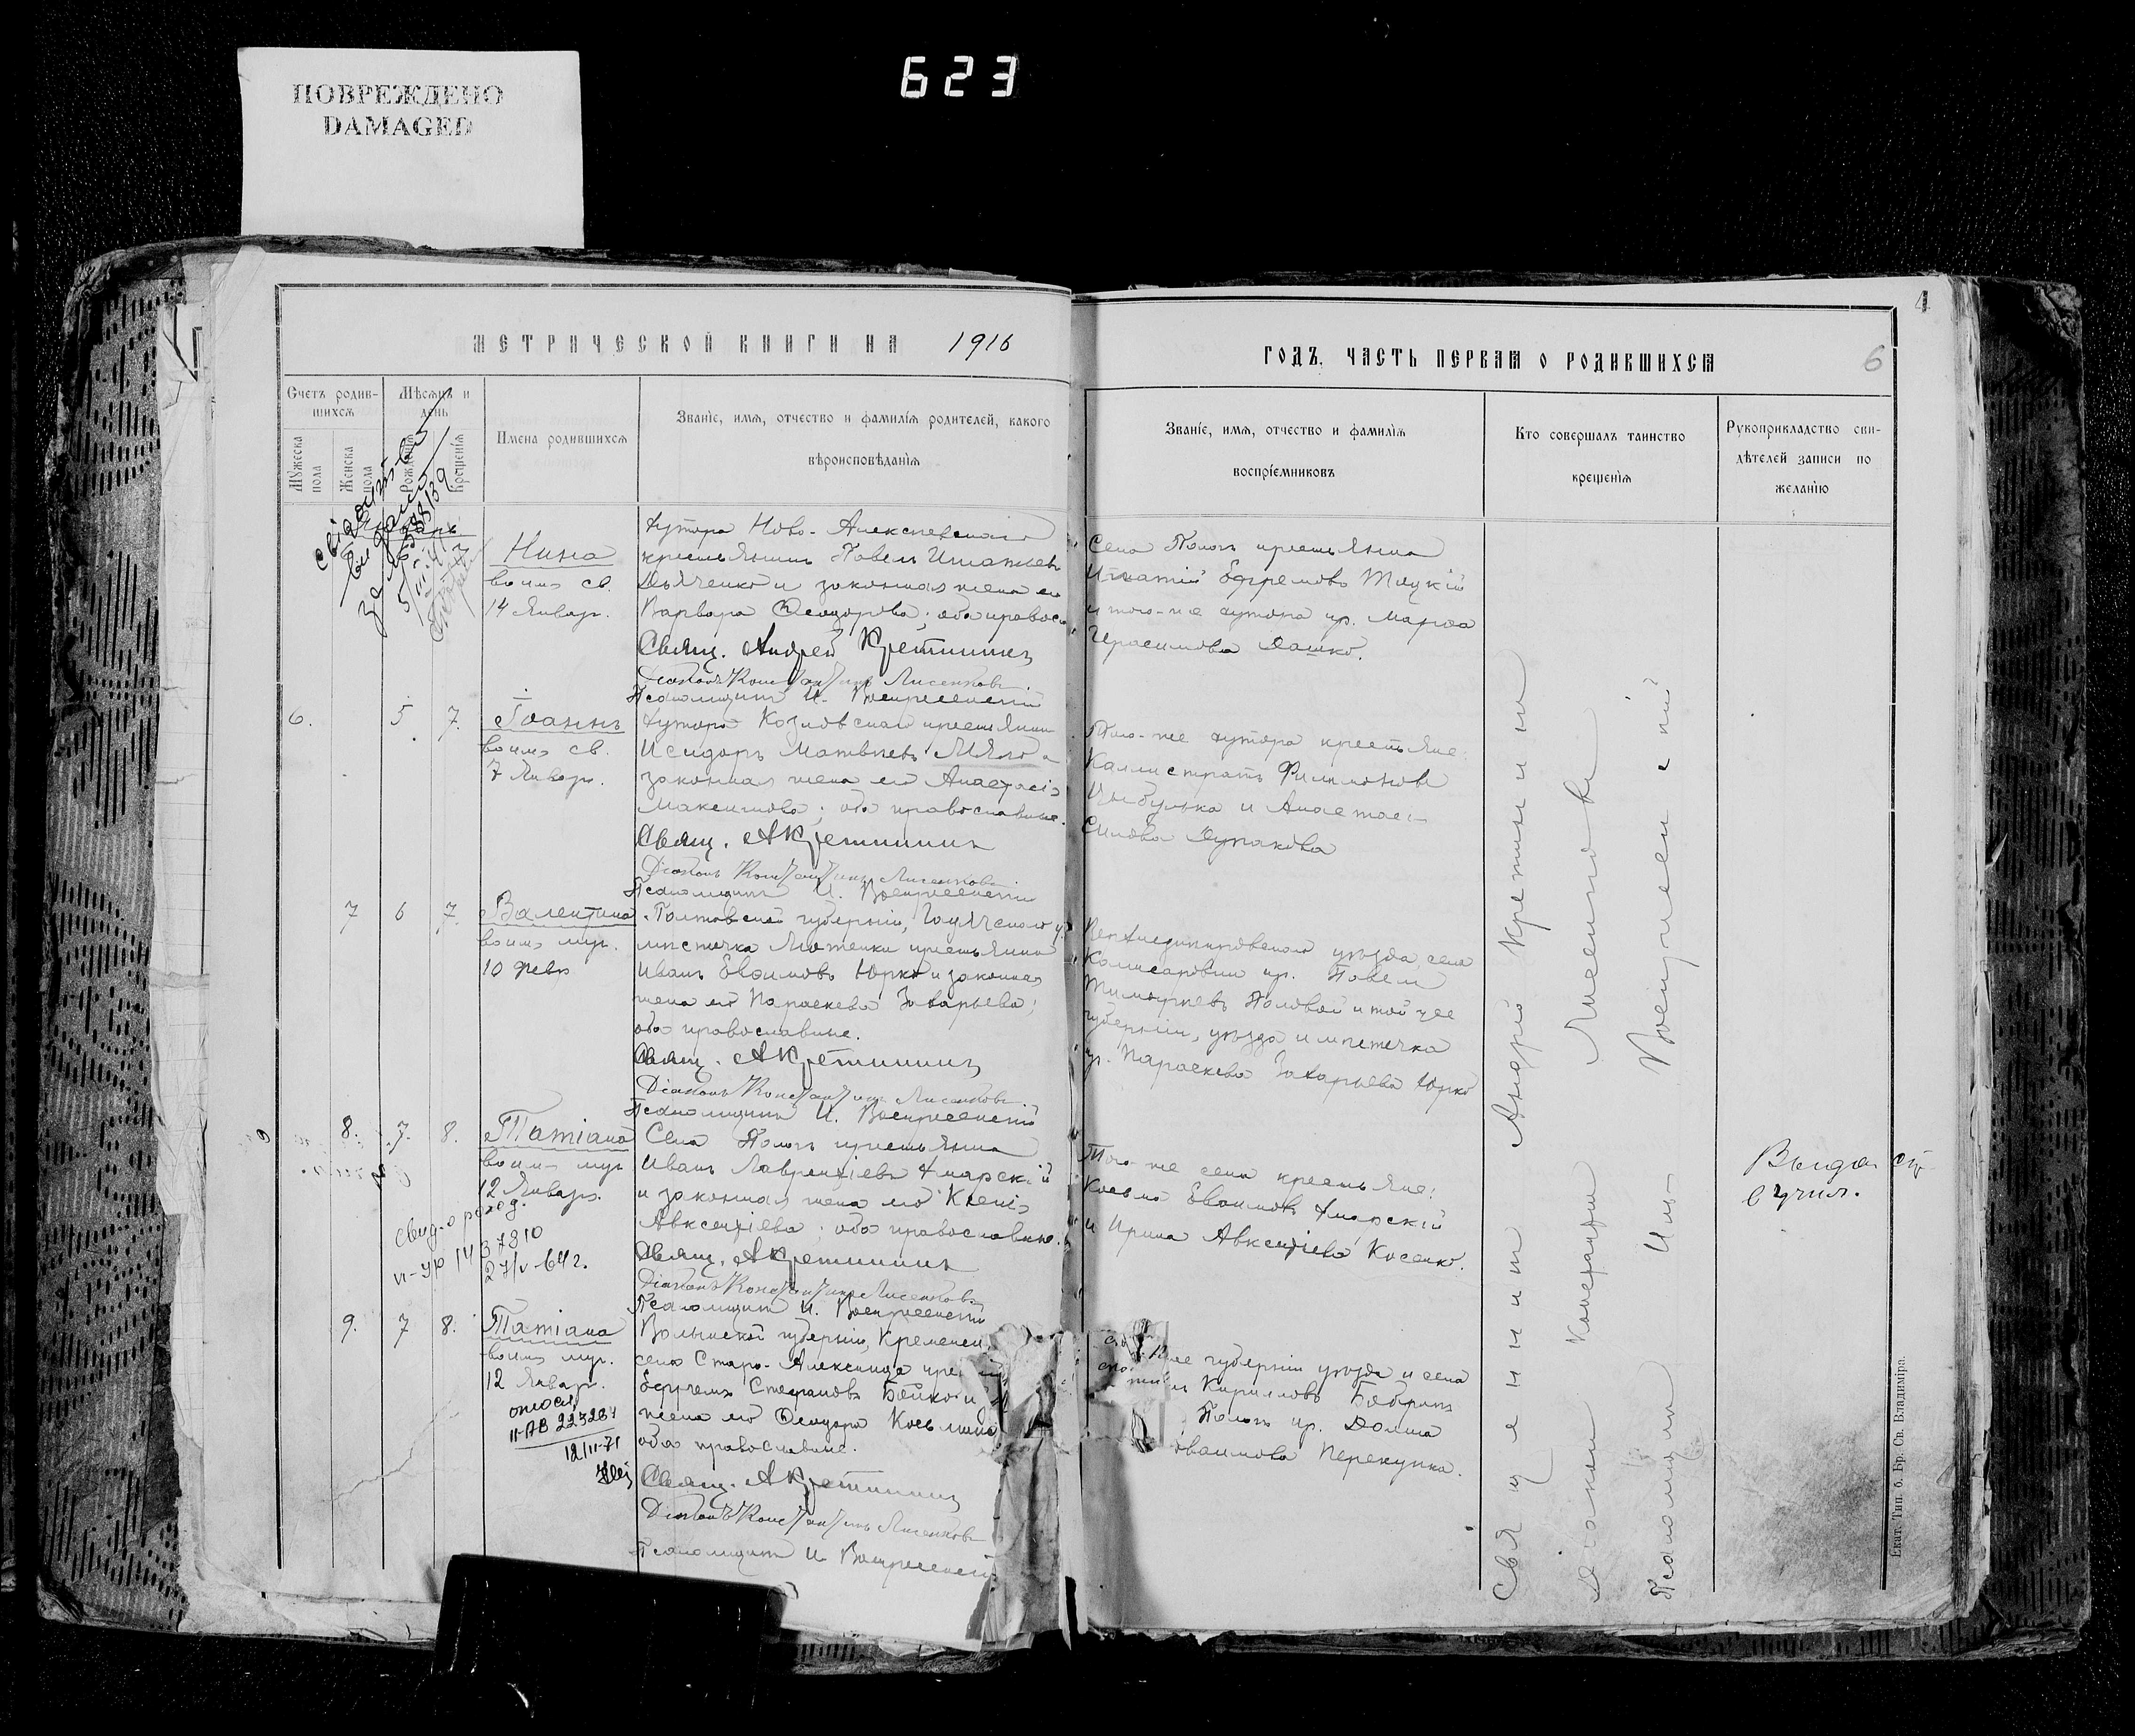 ПОВРЕЖДЕНО
DAMAGED
623
4
МЕТРИЧЕСКОЙ КНИГИ НА 1916
ГОДЪ, ЧАСТЬ ПЕРВАЯ О РОДИВШИХСЯ
6
Счетъ родив-
шихся
Мѣсяцъ и
день
Мужеска
пола
Женска
пола
Рожденія
Крещенія
Имена родившихся
Званіе, имя, отчество и фамилія родителей, какого
вѣроисповѣданія
Званіе, имя, отчество и фамилія
воспріемниковъ
Кто совершалъ таинство
крещенія
Рукоприкладство сви-
дѣтелей записи по
желанію
Нина
во имя св.
14 Январ.
хутора Ново-Алексѣевскаго
крестьянинъ Павелъ Игнатіевъ
Дьяченко и законная жена его
Варвара Ѳеодорова; оба правосл
Свящ. Андрей Кретининъ
Діаконъ Константинъ Лисенковъ
Псаломщикъ И. Воскресенскій
Села Пологъ крестьянинъ
Игнатій Ефремовъ Тицкій
и того-же хутора кр. Марѳа
Герасимова Дашко.
6. 5 7.
Іоаннъ
во имя св.
7 Январ.
хутора Козловскаго крестьянинъ
Исидоръ Матвѣевъ
законная жена его Анастасія
Максимова; оба православные.
Свящ. А Кретининъ
Діаконъ Константинъ Лисенковъ
Псаломщикъ И. Воскресенскій
Того-же хутора крестьяне:
Каллистратъ Филимоновъ
Цыбулька и Анастасія
7 6 7.
Валентина
во имя муч.
10 Февр
Полтавской губерніи, Гадячскаго у.
мѣстечка Лютенки крестьянинъ
Иванъ Евѳимовъ Юрко и законная
жена его Параскева Захарьева;
оба православные.
Свящ. А Кретининъ
Діаконъ Константинъ Лисенковъ
Псаломщикъ И. Воскресенскій
Верхнеднѣпровскаго уѣзда, села
Комисаровки кр. Павелъ
Тимоѳеевъ Половой и той же
губерніи, уѣзда и мѣстечка
кр. Параскева Захарьева Юрко
8. 7. 8.
Татіана
во имя муч
12 Январ.
свид-о рожд.
VI-УР 14 37810
27/V-64г.
Села Пологъ крестьянинъ
Иванъ Лаврентіевъ Хмарскій
и законная жена его Ксенія
Авксентіева; оба православные.
Свящ. А Кретининъ
Діаконъ Константинъ Лисенковъ
Псаломщикъ И. Воскресенскій
Того-же села крестьяне:
Косьма Евѳимовъ Хмарскій
и Ирина Авксентіева Косенко.
9. 7 8.
Татіана
во имя муч.
12 Январ.
II-АВ 223284
12/II-71
Волынской губерніи, Кременец.
села Старо-Алексинца
Стефановъ Бойко и
жена его Ѳеодора Косьмина
оба православные.
Свящ. А Кретининъ
Діаконъ Константинъ Лисенковъ
Псаломщикъ И. Воскресенскій
же губерніи уѣзда и села
Кирилловъ
Пологъ кр. Домна
Евѳимова Перекупка.
Священникъ Андрей Кретининъ
Діаконъ Константинъ Лисенковъ
Псаломщикъ Воскресенскій
Екат. Тип. б. Бр. Св. Владиміра.